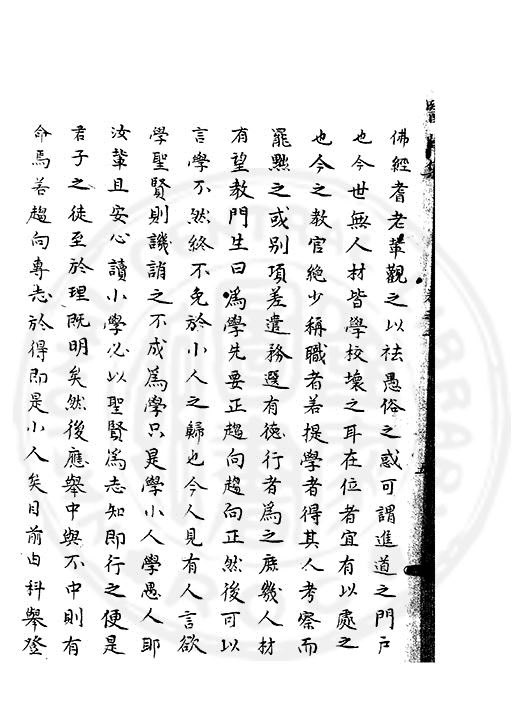 佛經耆老輩觀之以祛愚俗之惑可謂進道之門戶
也今世無人材皆學校壞之耳在位者宜有以處之
也今之教官絶少稱職者若提學者得其人考察而
罷黜之或别項差遣務選有徳行者為之庶幾人材
有望教門生曰為學先要正趨向趨向正然後可以
言學不然終不免於小人之歸也今人見有人言欲
學聖賢則譏誚之不成為學只是學小人學愚人耶
汝輩且安心讀小學必以聖賢為志知即行之便是
君子之徒至於理既明矣然後應舉中與不中則有
命焉善趨向專志於得即是小人矣目前由科舉登